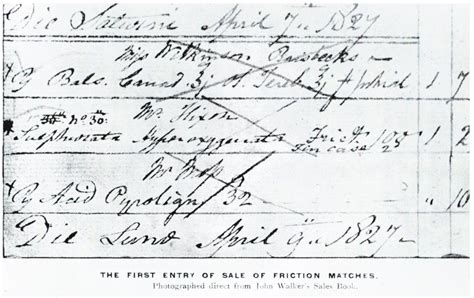 Die Saturni April 7th. 1827
Miss Wilkinson
Bals. Canad. 3j 3j 1 7
No 30. Mr Hixon
Sulphurata Hyperoxygenata Frict. 100 1 2
Tin case 2
Mr
Acid Pyrolign 32 " 10
Die Lunæ April 9. 1827.
THE FIRST ENTRY OF SALE OF FRICTION MATCHES.
Photographed direct from John Walker's Sales Book.